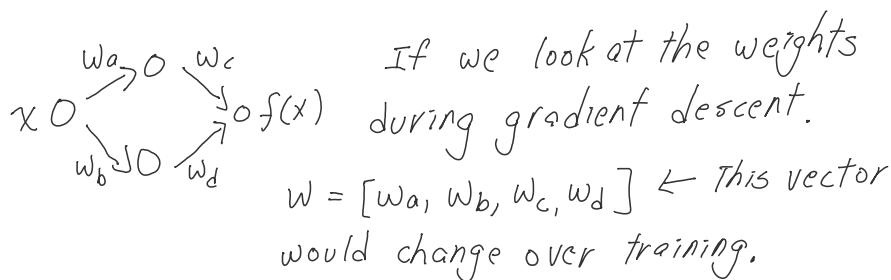 wa
wc
x
f(x)
wb
wd
If we look at the weights
during gradient descent.
W = [wa, wb, wc, wd] ← This vector
would change over training.